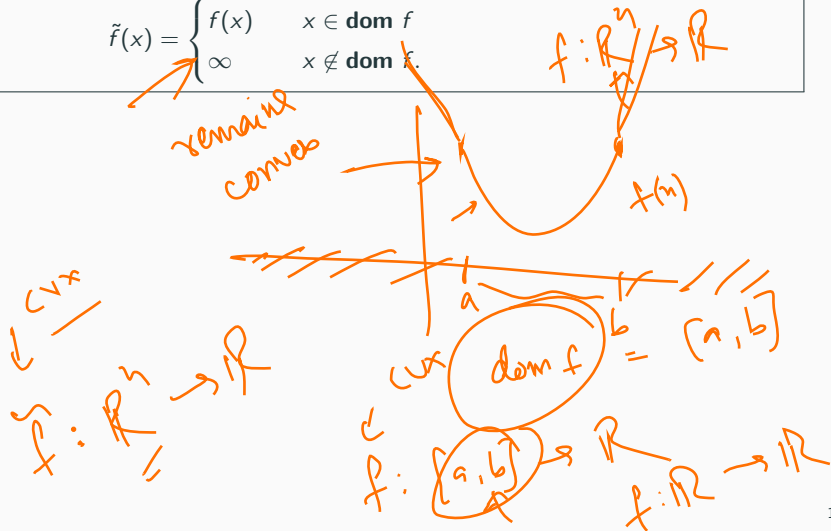 f̃(x) = { f(x) x ∈ dom f
∞ x ∉ dom f.
f : ℝⁿ → ℝ
remains
convex
f(x)
a
b
cvx
f̃ : ℝⁿ → ℝ
cvx
dom f = [a, b]
f : [a, b] → ℝ
f : ℝ → ℝ